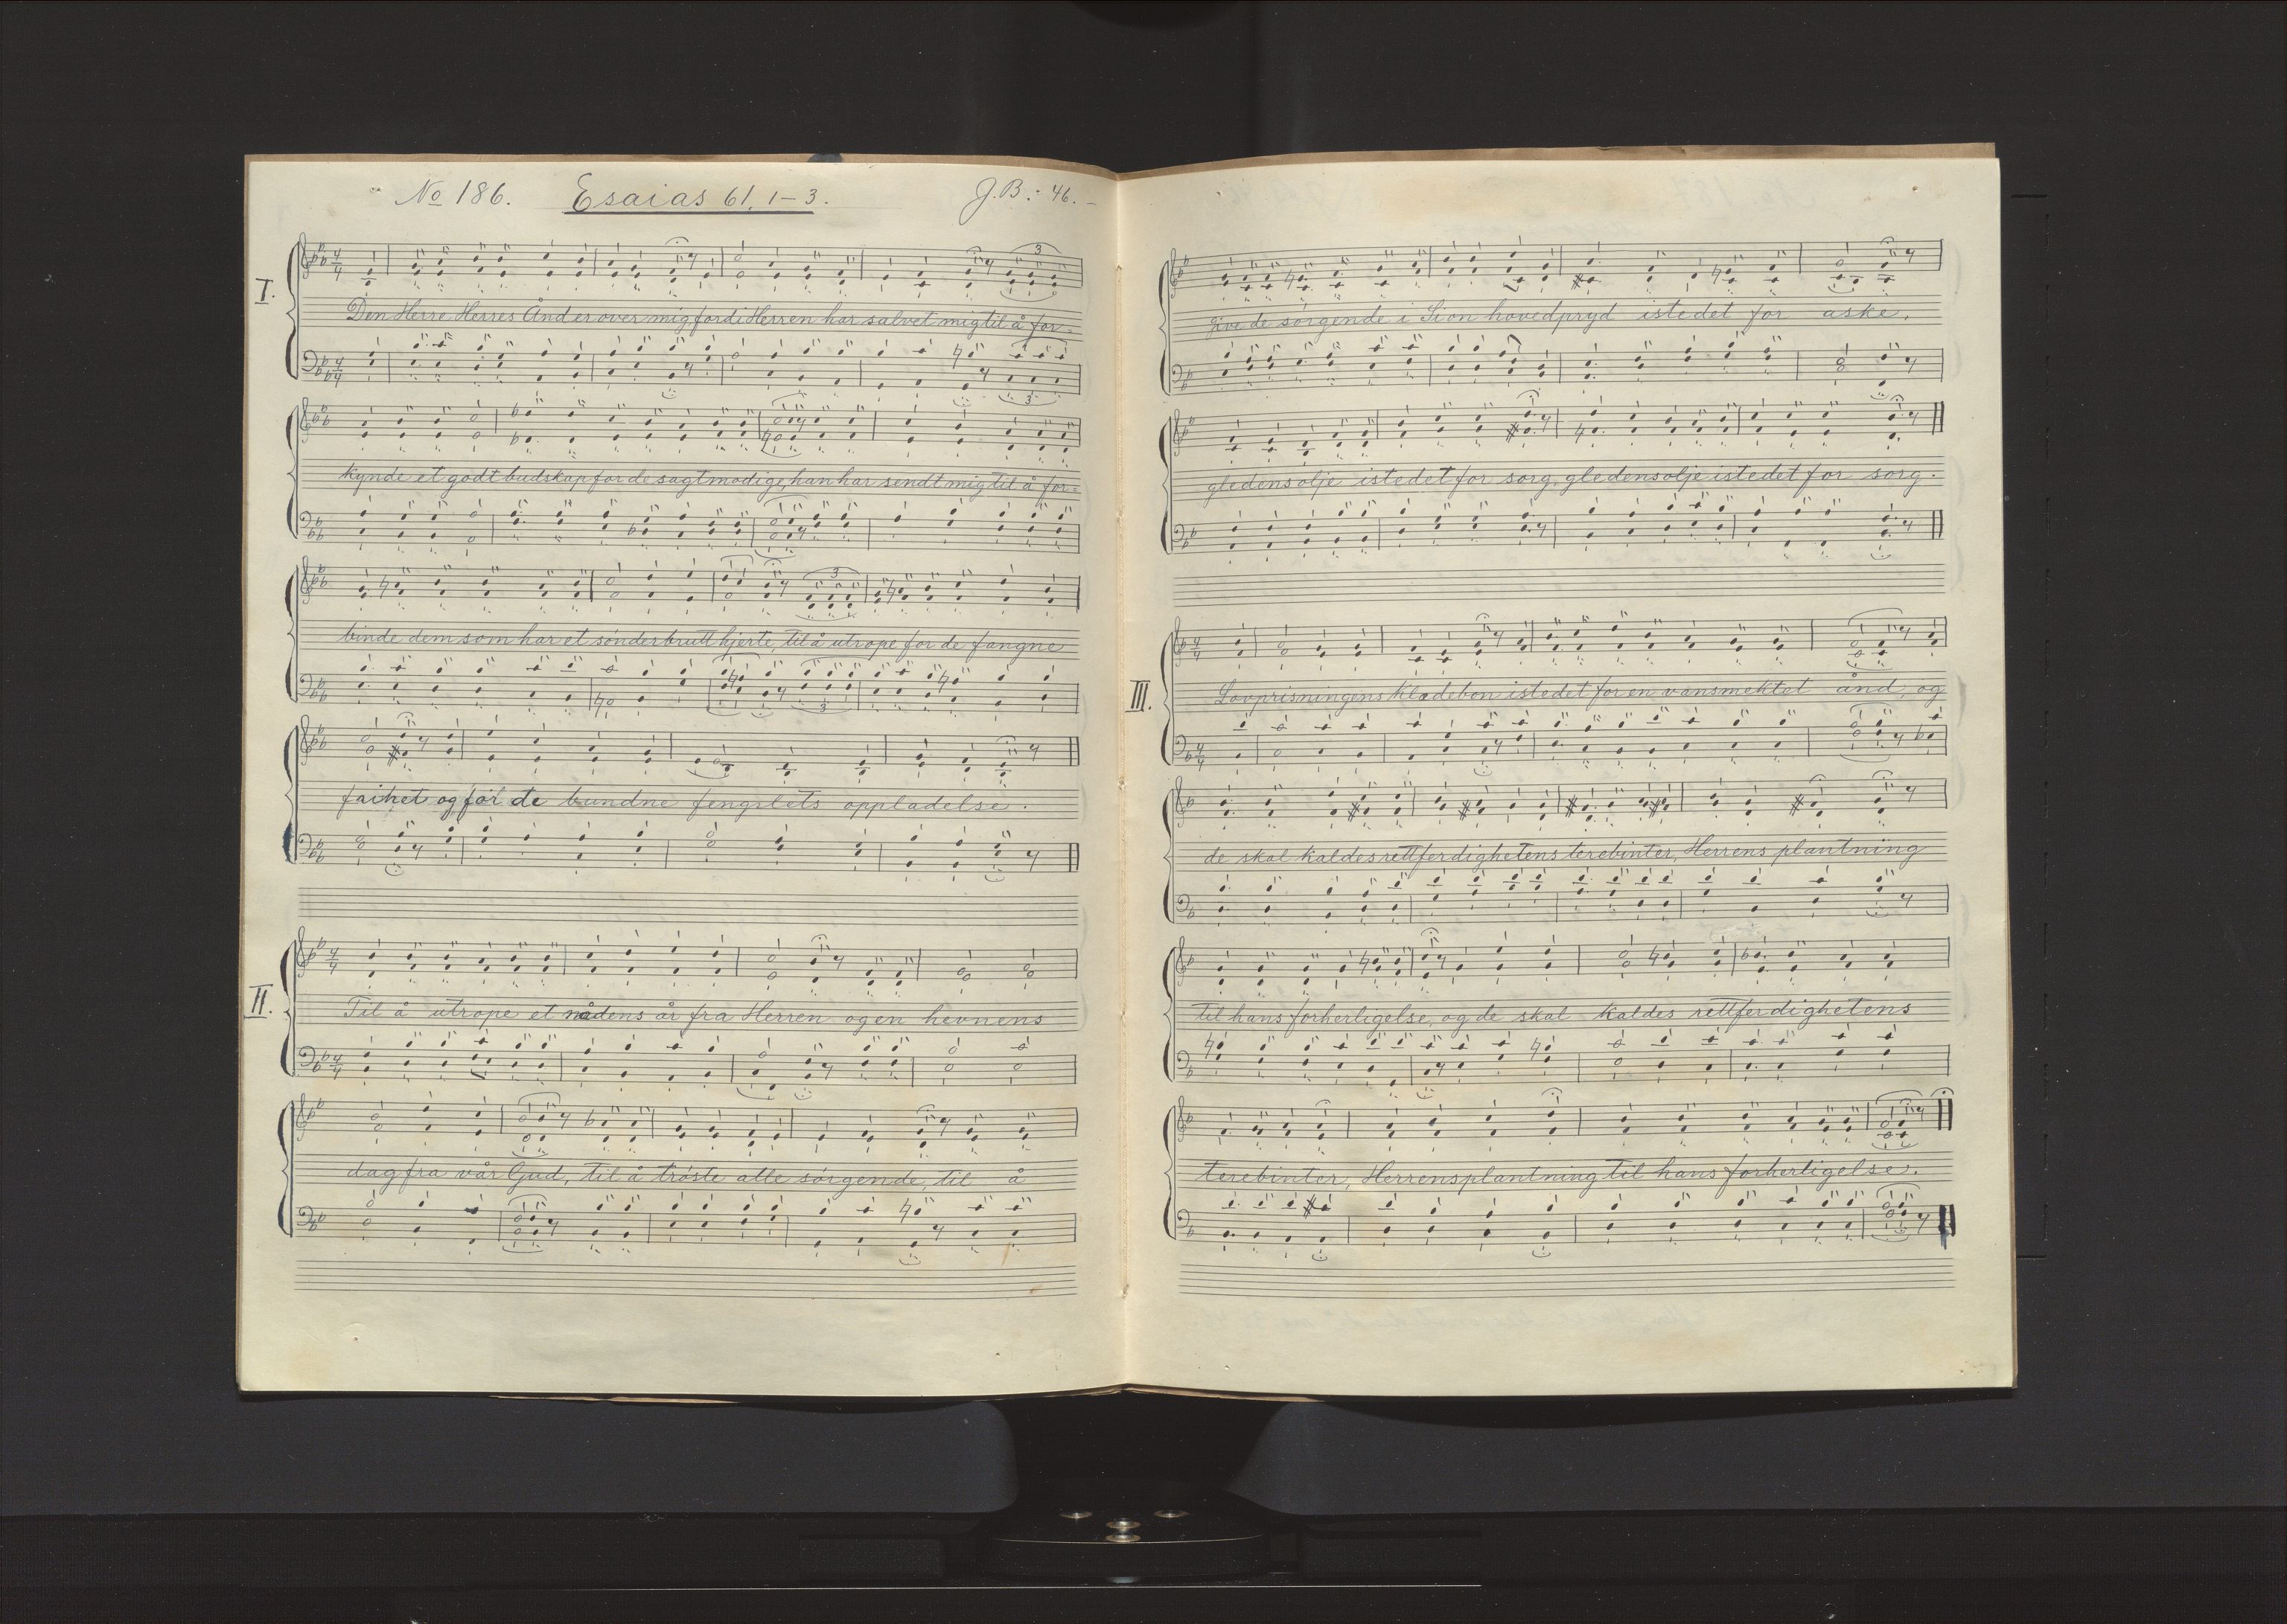 No 186. Esaias 61, 1-3. J.B.: 46.-
I.
Den Herre Herres Ånd er over mig, fordi Herren har salvet mig til å for-
kynde et godt budskap for de sagtmodige, han har sendt mig til å for-
binde dem som har et sønderbrutt hjerte, til å utrope for de fangne
frihet og for de bundne fengslets oppladelse.
II.
Til å utrope et nådens år fra Herren og en hevnens
dag fra vår Gud, til å trøste alle sørgende, til å
give de sørgende i Sion hovedpryd istedet for aske,
gledens olje istedet for sorg, gledens olje istedet for sorg.
III.
Lovprisningens klædebon istedet for en vansmektet ånd, og
de skal kaldes rettferdighetens terebinter, Herrens plantning
til hans forherligelse, og de skal kaldes rettferdighetens
terebinter, Herrens plantning til hans forherligelse.